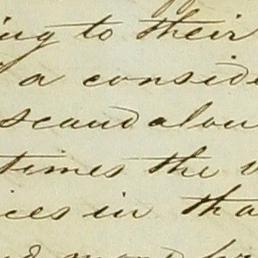 ing to their
a conside
scandalou
times the
ices in tha